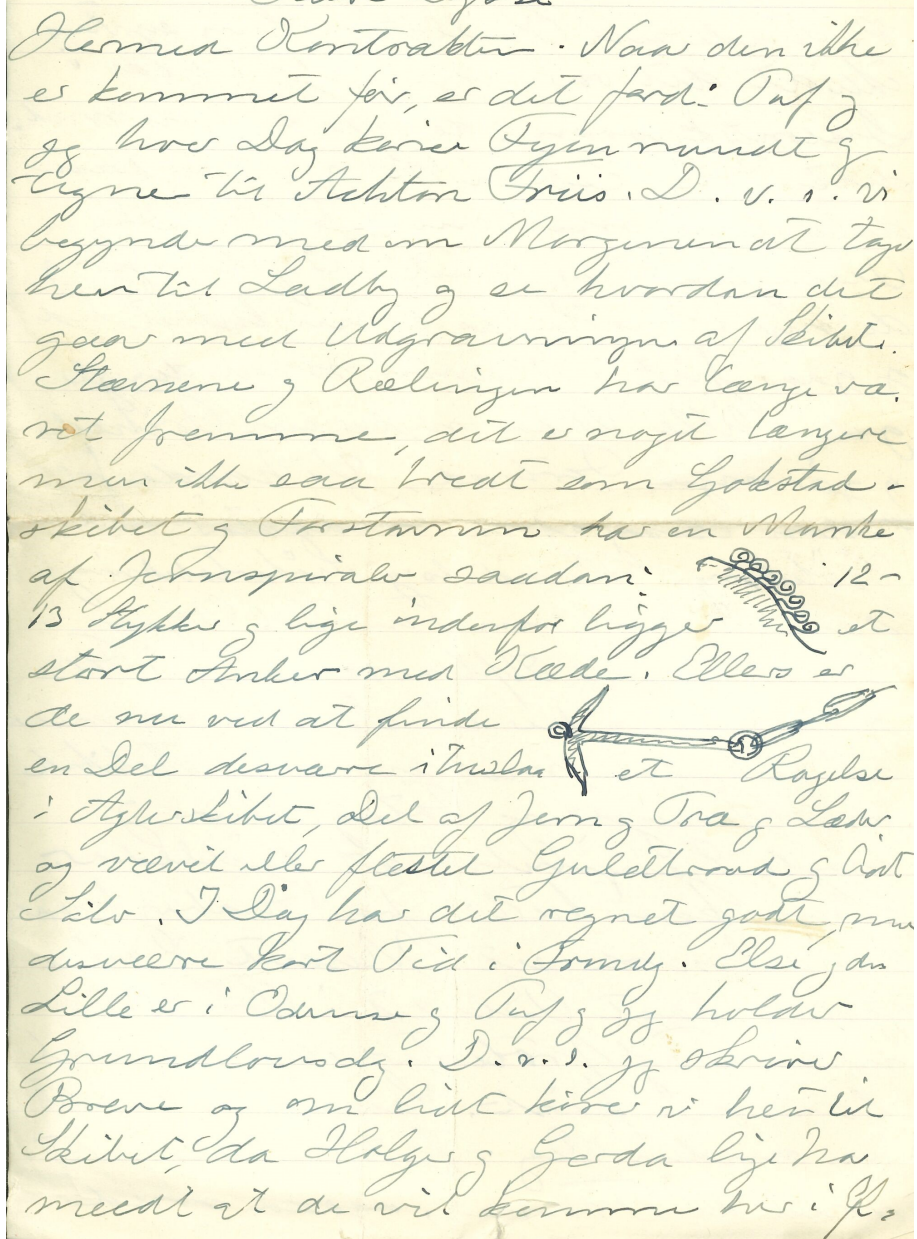 Hermed Kontrakten. Naar den ikke
er kommet før, er det fordi Puf og
jeg hver Dag kører Fyen rundt og
tegner til Achton Friis. D. v. s. vi
begynder med om Morgenen at tage
hen til Ladby og se hvordan det
gaar med Udgravningen af Skibet.
Stævnene og Rælingen har længe væ-
ret fremme, det er noget længere
men ikke saa bredt som Gokstad-
skibet og Forstavnen har en Manke
af Jernspiraler saadan: 12-
13 Stykker og lige indenfor ligger et
stort Anker med Kæde. Ellers er
de nu ved at finde
en Del desværre et Ragelse
i Agterskibet, Del af Jern og Træ og Læder
og vævet eller flettet Guldtraad og lidt
Sølv. I Dag har det regnet godt, men
desværre kort Tid i Forvejen. Else og den
Lille er i Odense og Puf og jeg holder
Grundlovsdag. D.v.s. jeg skriver
Breve og om lidt kører vi hen til
Skibet, da Holger og Gerda lige har
meldt at de vil komme her i